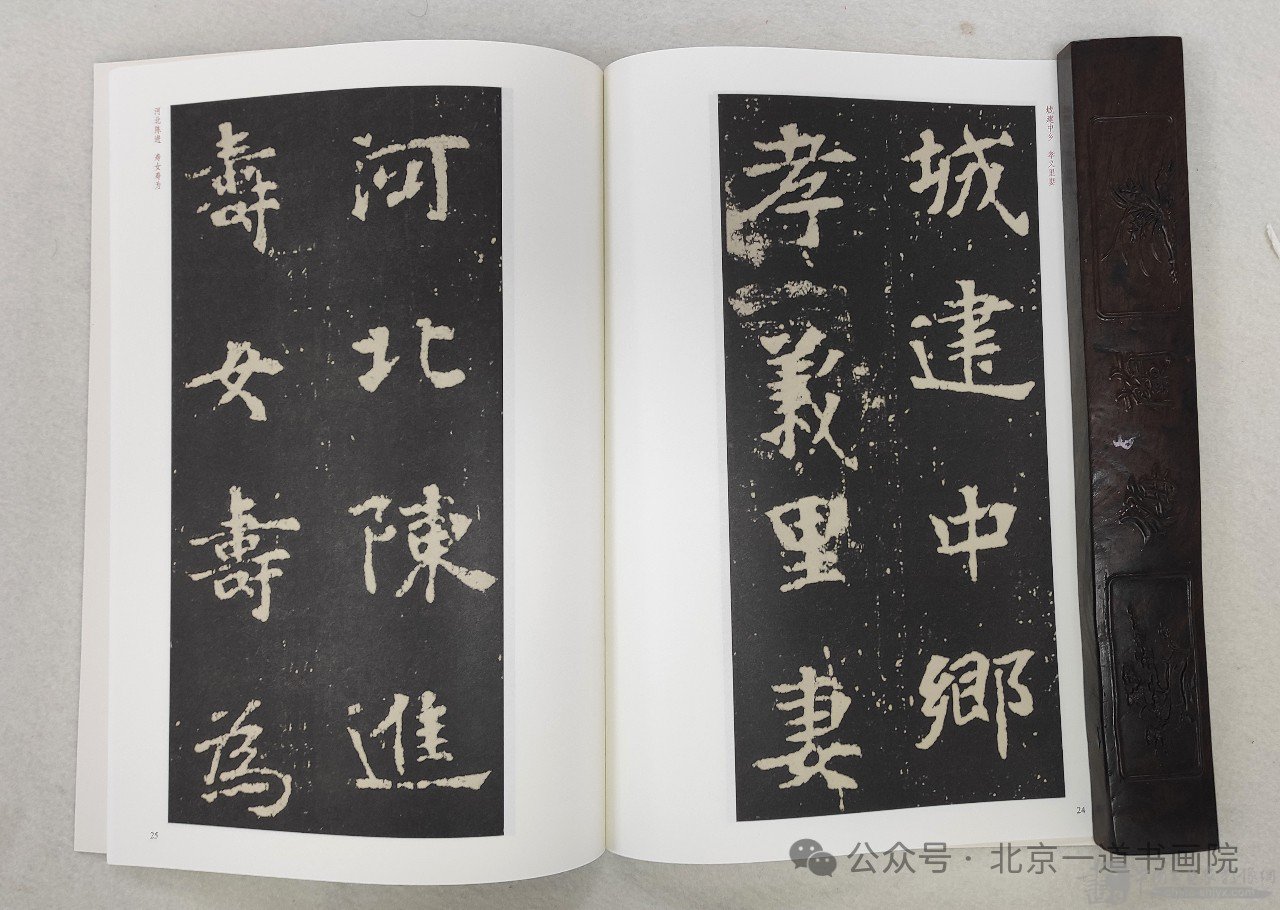 城建中鄉
孝義里妻
城建中乡 孝义里妻
24
河北陳進
壽女壽為
河北陈进 寿女寿为
25
公众号·北京一道书画院